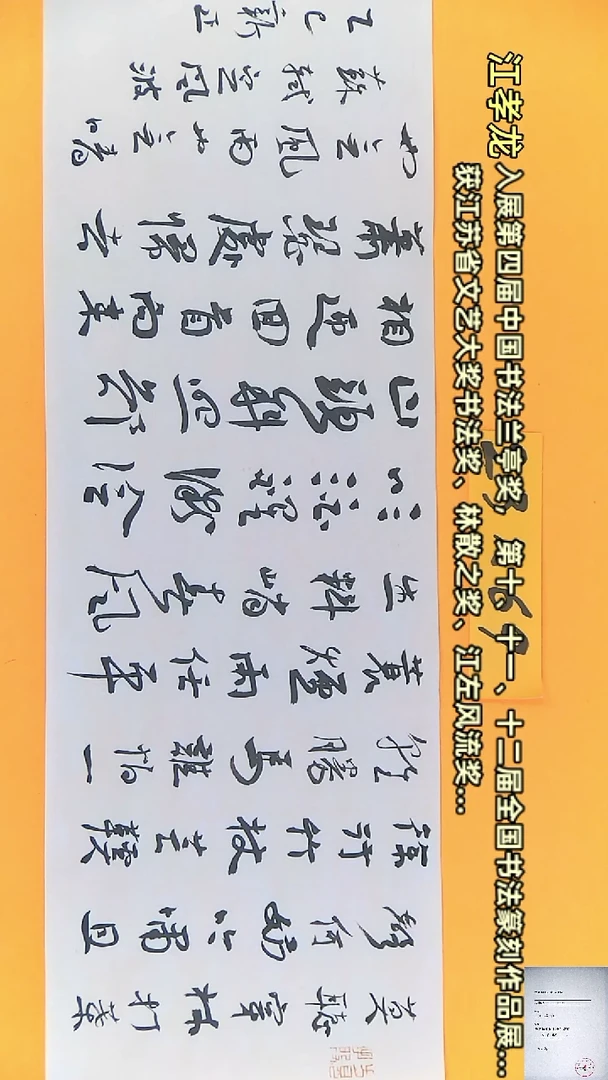 江孝龙 入展第四届中国书法兰亭奖，第十、十一、十二届全国书法篆刻作品展...
获江苏省文艺大奖书法奖、林散之奖、江左风流奖...
莫聽穿林打葉
聲何妨吟嘯且
徐行竹杖芒鞋
輕勝馬誰怕一
蓑煙雨任平
生料峭春風
吹酒醒微冷
山頭斜照卻
相迎回首向來
蕭瑟處歸去
也無風雨也無晴
蘇軾定風波
乙巳新正